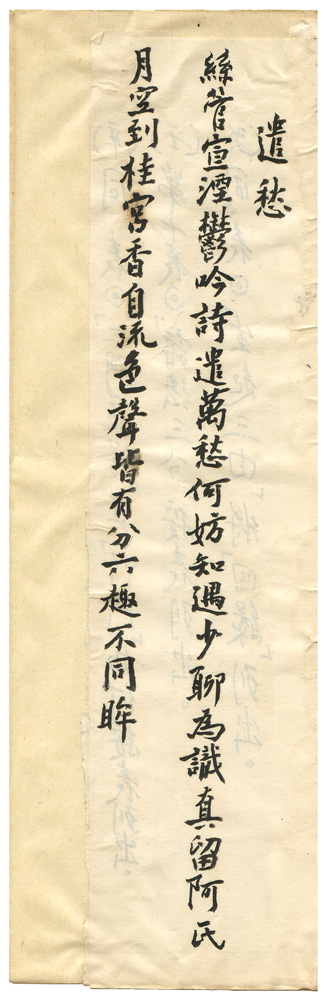 遣愁
絲管宣湮鬱吟詩遣萬愁何妨知遇少聊為識真留阿氏
月空到桂宮香自流色聲皆有分六趣不同眸